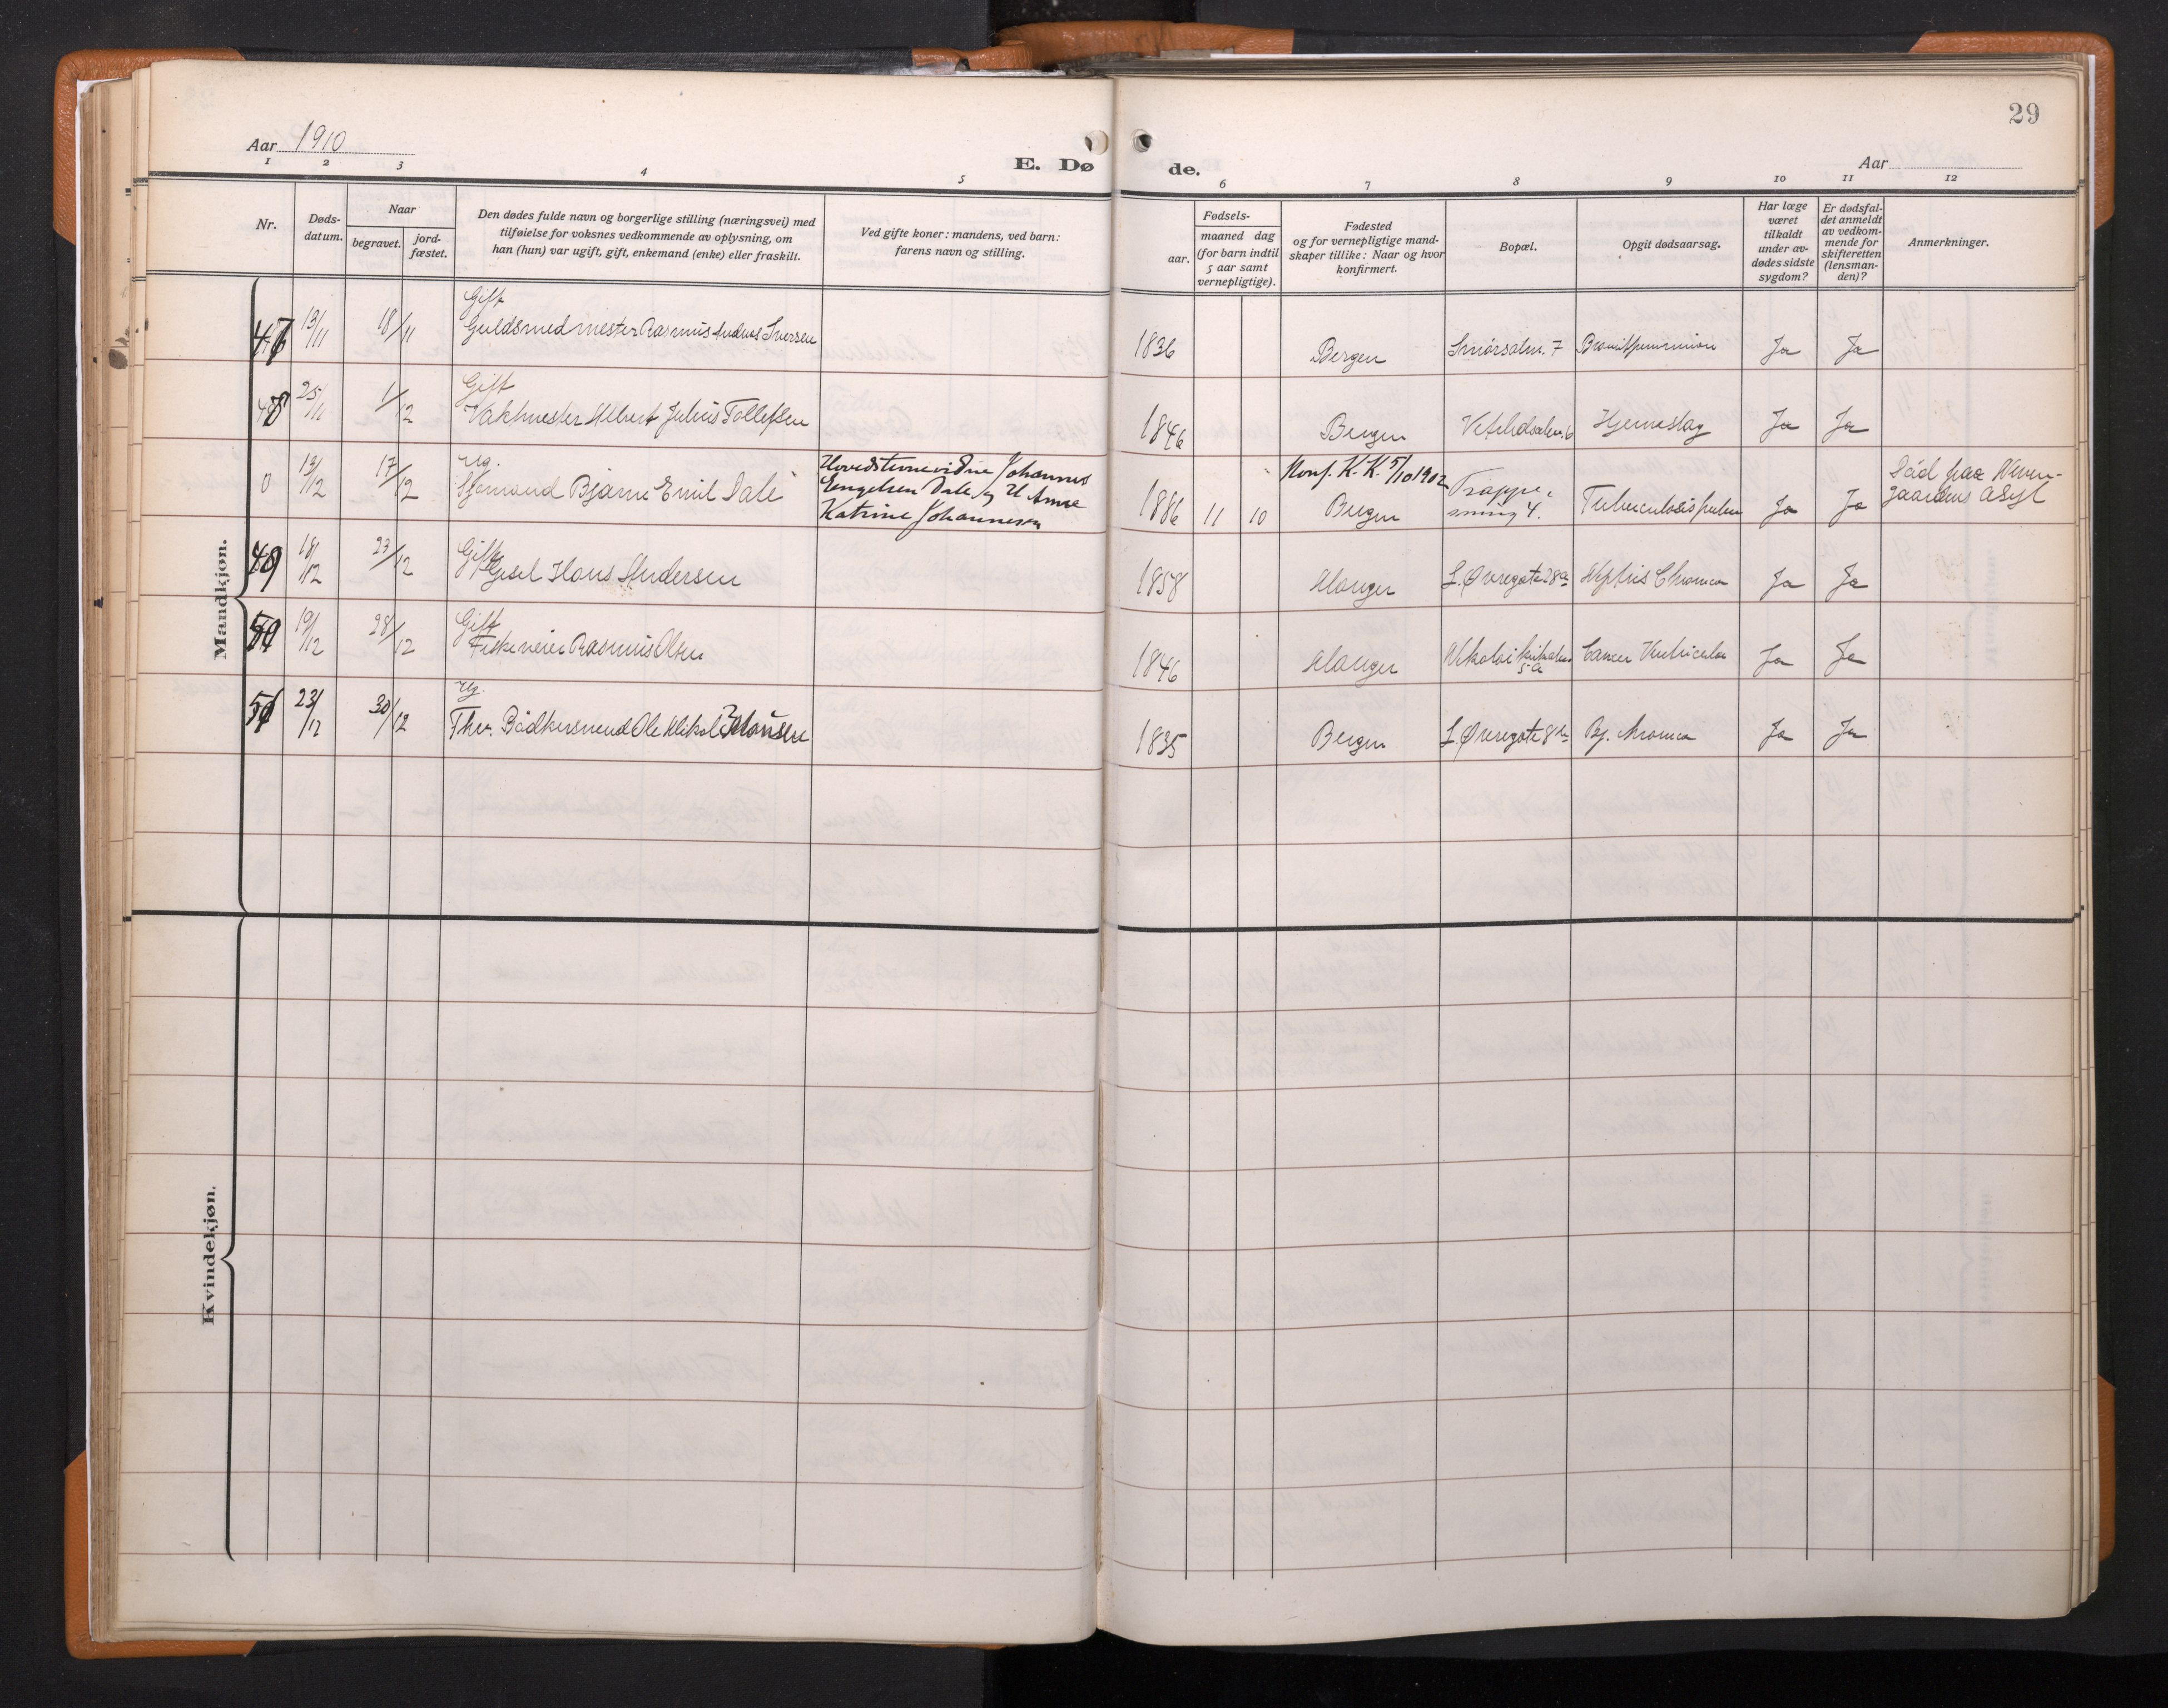 29
Aar 1910
E. Døde.
Aar
1 2 3 4 5 6 7 8 9 10 11 12
Nr.
Døds-
datum.
Naar
begravet.
jord-
fæstet.
Den dødes fulde navn og borgerlige stilling (næringsvei) med
tilføielse for voksnes vedkommende av oplysning, om
han (hun) var ugift, gift, enkemand (enke) eller fraskilt.
Ved gifte koner: mandens, ved barn:
farens navn og stilling.
Fødsels-
aar.
maaned dag
(for barn indtil
5 aar samt
vernepligtige).
Fødested
og for vernepligtige mand-
skaper tillike: Naar og hvor
konfirmert.
Bopæl.
Opgit dødsaarsag.
Har læge
været
tilkaldt
under av-
dødes sidste
sygdom?
Er dødsfal-
det anmeldt
av vedkom-
mende for
skifteretten
(lensman-
den)?
Anmerkninger.
Mandkjøn.
Gift
47 13/11 18/11 Guldsmedmester Rasmus Andreas Iversen 1836 Bergen Smørsalm. 7 Ja Ja
Gift
48 25/11 1/12 Vaktmester Albert Julius Tollefsen 1846 Bergen 6 Hjerneslag Ja Ja
Ug. Hovedstevnevidne Johannes Konf. K.K. 5/10 1902 Død paa
0 13/12 17/12 Sjømand Bjarne Emil Dale Engelsen Dale og H. Anna 1886 11 10 Bergen 4. Tuberculosis Ja Ja gaardens Asyl
Katrine Johannesen
Gift
49 18/12 23/12 Hans Andersen 1858 Manger L. Øvregate 28a Nefritis Chronica Ja Ja
Gift
50 19/12 28/12 Rasmus Olsen 1846 Manger Nikolai 5a Cancer Ventriculi Ja Ja
Ug.
51 23/12 30/12 Fhv. Bødkersvend Ole Nikolai Hansen 1835 Bergen L. Øvregate 8 Ja Ja
Kvindekjøn.